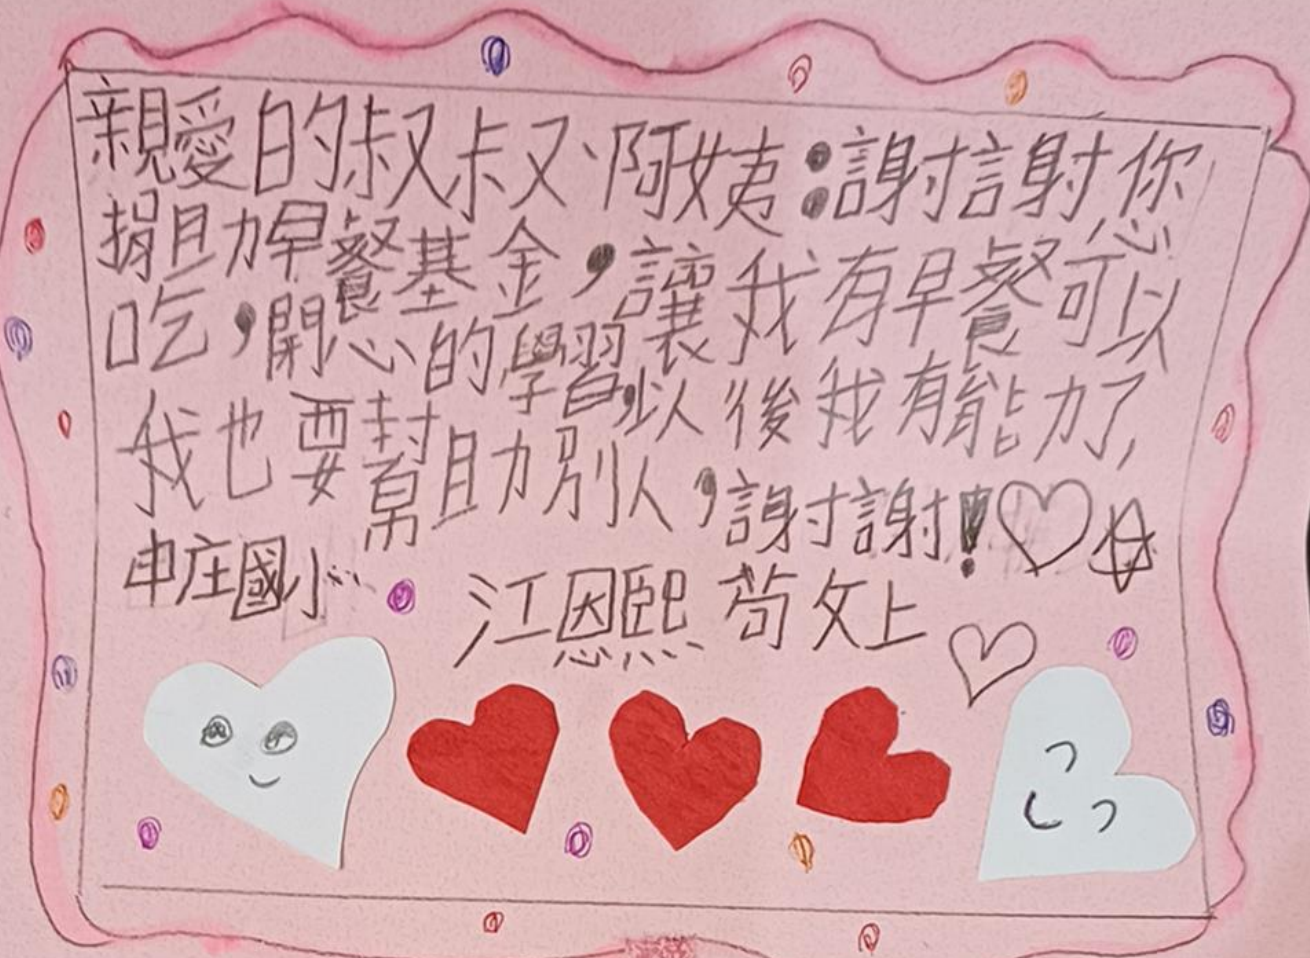 親愛的叔叔、阿姨：謝謝你
捐助早餐基金，讓我有早餐可以
吃，開心的學習，以後我有能力了，
我也要幫助別人，謝謝！
中庄國小
江恩熙 敬上